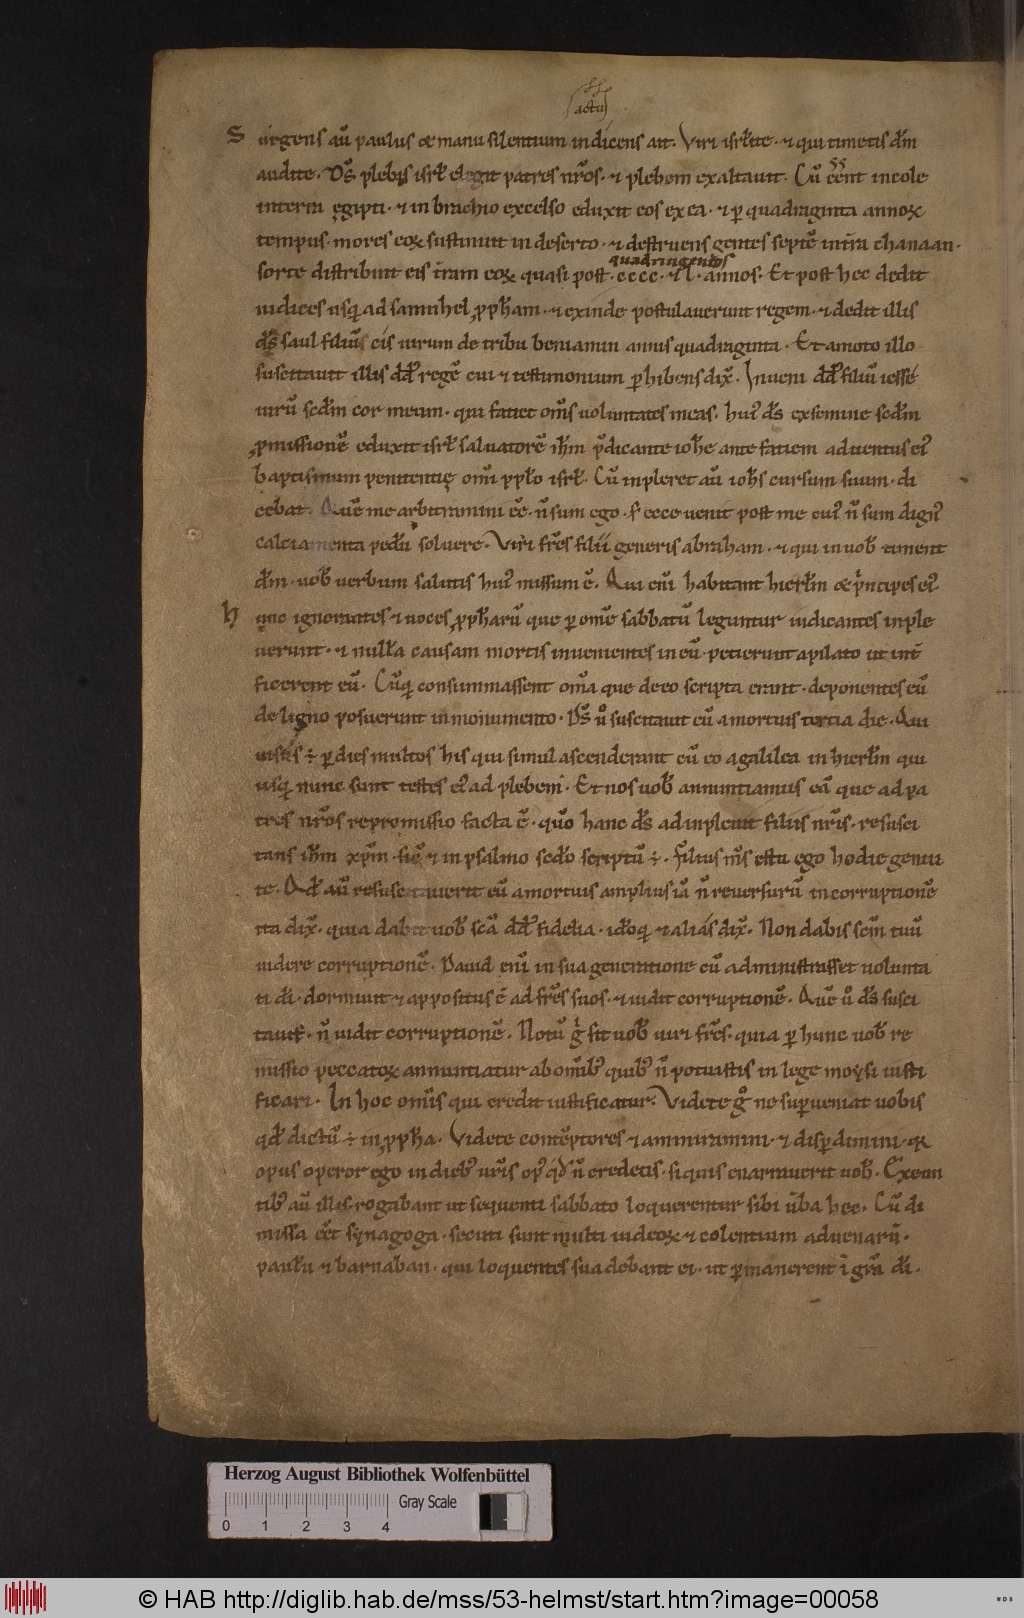 actuū
Surgens aū paulus & manu silentium indicens ait. Viri isrł̄ite · ⁊ qui timetis dm̄
audite. Dс̄ plebis isrł elegit patres nr̄os · ⁊ plebem exaltauit. Cū eēnt incole
interra egipti · ⁊ in brachio excelso eduxit eos ex ea · ⁊ ꝑ quadraginta annoꝝ
tempus · mores eoꝝ sustinuit in deserto · ⁊ destruens gentes septē in tr̄a chanaan ·
quadringentos
sorte distribuit eis tr̄am eoꝝ quasi post · cccc · ⁊ l · annos. Et post hec dedit
iudices usq; ad samuhel ꝓph̄am · ⁊ exinde postulauerunt regem · ⁊ dedit illis
ds̄ saul filiū cis uirum de tribu beniamin annis quadraginta · Et amoto illo
suscitauit illis dd̄ regē cui ⁊ testimonium ꝑhibens dix̄. Inueni dd̄ filiū iesse
uirū scd̄m cor meum · qui faciet om̄s uoluntates meas. huiꝰ ds̄ exsemine scd̄m
ꝓmissionē eduxit isrł saluatorē ih̄m p̄dicante ioh̄e ante faciem aduentus eiꝰ
baptismum penitentię omī ppl̄o isrł. Cū inpleret aū ioh̄s cursum suum · di
cebat. Quē me arbitramini eē · n̄ sum ego · s; ecce uenit post me cuiꝰ n̄ sum dignꝰ
calciamenta pedū soluere. Viri fr̄es filii generis abraham · ⁊ qui in uob̄ timent
dm̄ · uob̄ uerbum salutis huiꝰ missum ē. Qui enī habitant hierłm & p̄ncipes eiꝰ
hunc ignorantes ⁊ uoces ꝓph̄arū que ꝑ omē sabbatū leguntur iudicantes inple
uerunt · ⁊ nullā causam mortis inuenientes in eū · petierunt apilato ut int̄
ficerent eū. Cūq; consummassent om̄a que de eo scripta erant · deponentes eū
de ligno posuerunt in monumento. Ds̄ ů suscitauit eū amortuis tercia die. Qui
uisus ÷ ꝑ dies multos his qui simul ascenderant cū eo agalilea in hierłm qui
usq; nunc sunt testes eiꝰ ad plebem. Et nos uob̄ annuntiamus eā que ad pa
tres nr̄os repromissio facta ē · qm̄ hanc ds̄ adinpleuit filiis nr̄is · resusci
tans ih̄m xp̄m · sic̄ ⁊ in psalmo scd̄o scriptū ÷. Filius ms̄ es tu ego hodie genui
te. Qd̄ aū resuscitauerit eū amortuis amplius iā n̄ reuersurū in corruptionē
ita dix̄ · quia dabit uob̄ scā dd̄ fidelia · idoq; ⁊ alias dix̄. Non dabis scm̄ tuū
uidere corruptionē. Dauid enī in sua generatione cū administrasset uolunta
ti dī · dormiuit ⁊ appositus ē ad fr̄es suos · ⁊ uidit corruptionē. Quē ů ds̄ susci
tauit · n̄ uidit corruptionē. Notū g̊ sit uob̄ uiri fr̄es · quia ꝑ hunc uob̄ re
missio peccatoꝝ annuntiatur ab omībꝰ quibꝰ n̄ potuistis in lege moysi iusti
ficari. In hoc om̄is qui credit iustificatur. Videte g̊ ne suꝑueniat uobis
qd̄ dictū ÷ in ꝓph̄a. Videte contēptores ⁊ ammiramini · ⁊ disꝑdimini · qꝛ
opus operor ego in diebꝰ ur̄is opꝰ qd̄ n̄ credetis · siquis enarrauerit uob̄. Exeun
tibꝰ aū illis rogabant ut sequenti sabbato loquerentur sibi ūba hec. Cū di
missa eēt synagoga · secuti sunt multi iudeoꝝ ⁊ colentium aduenarū ·
paulū ⁊ barnaban · qui loquentes suadebant ei · ut ꝑmanerent ī gr̄a dī.
Herzog August Bibliothek Wolfenbüttel
Gray Scale
0 1 2 3 4
© HAB http://diglib.hab.de/mss/53-helmst/start.htm?image=00058